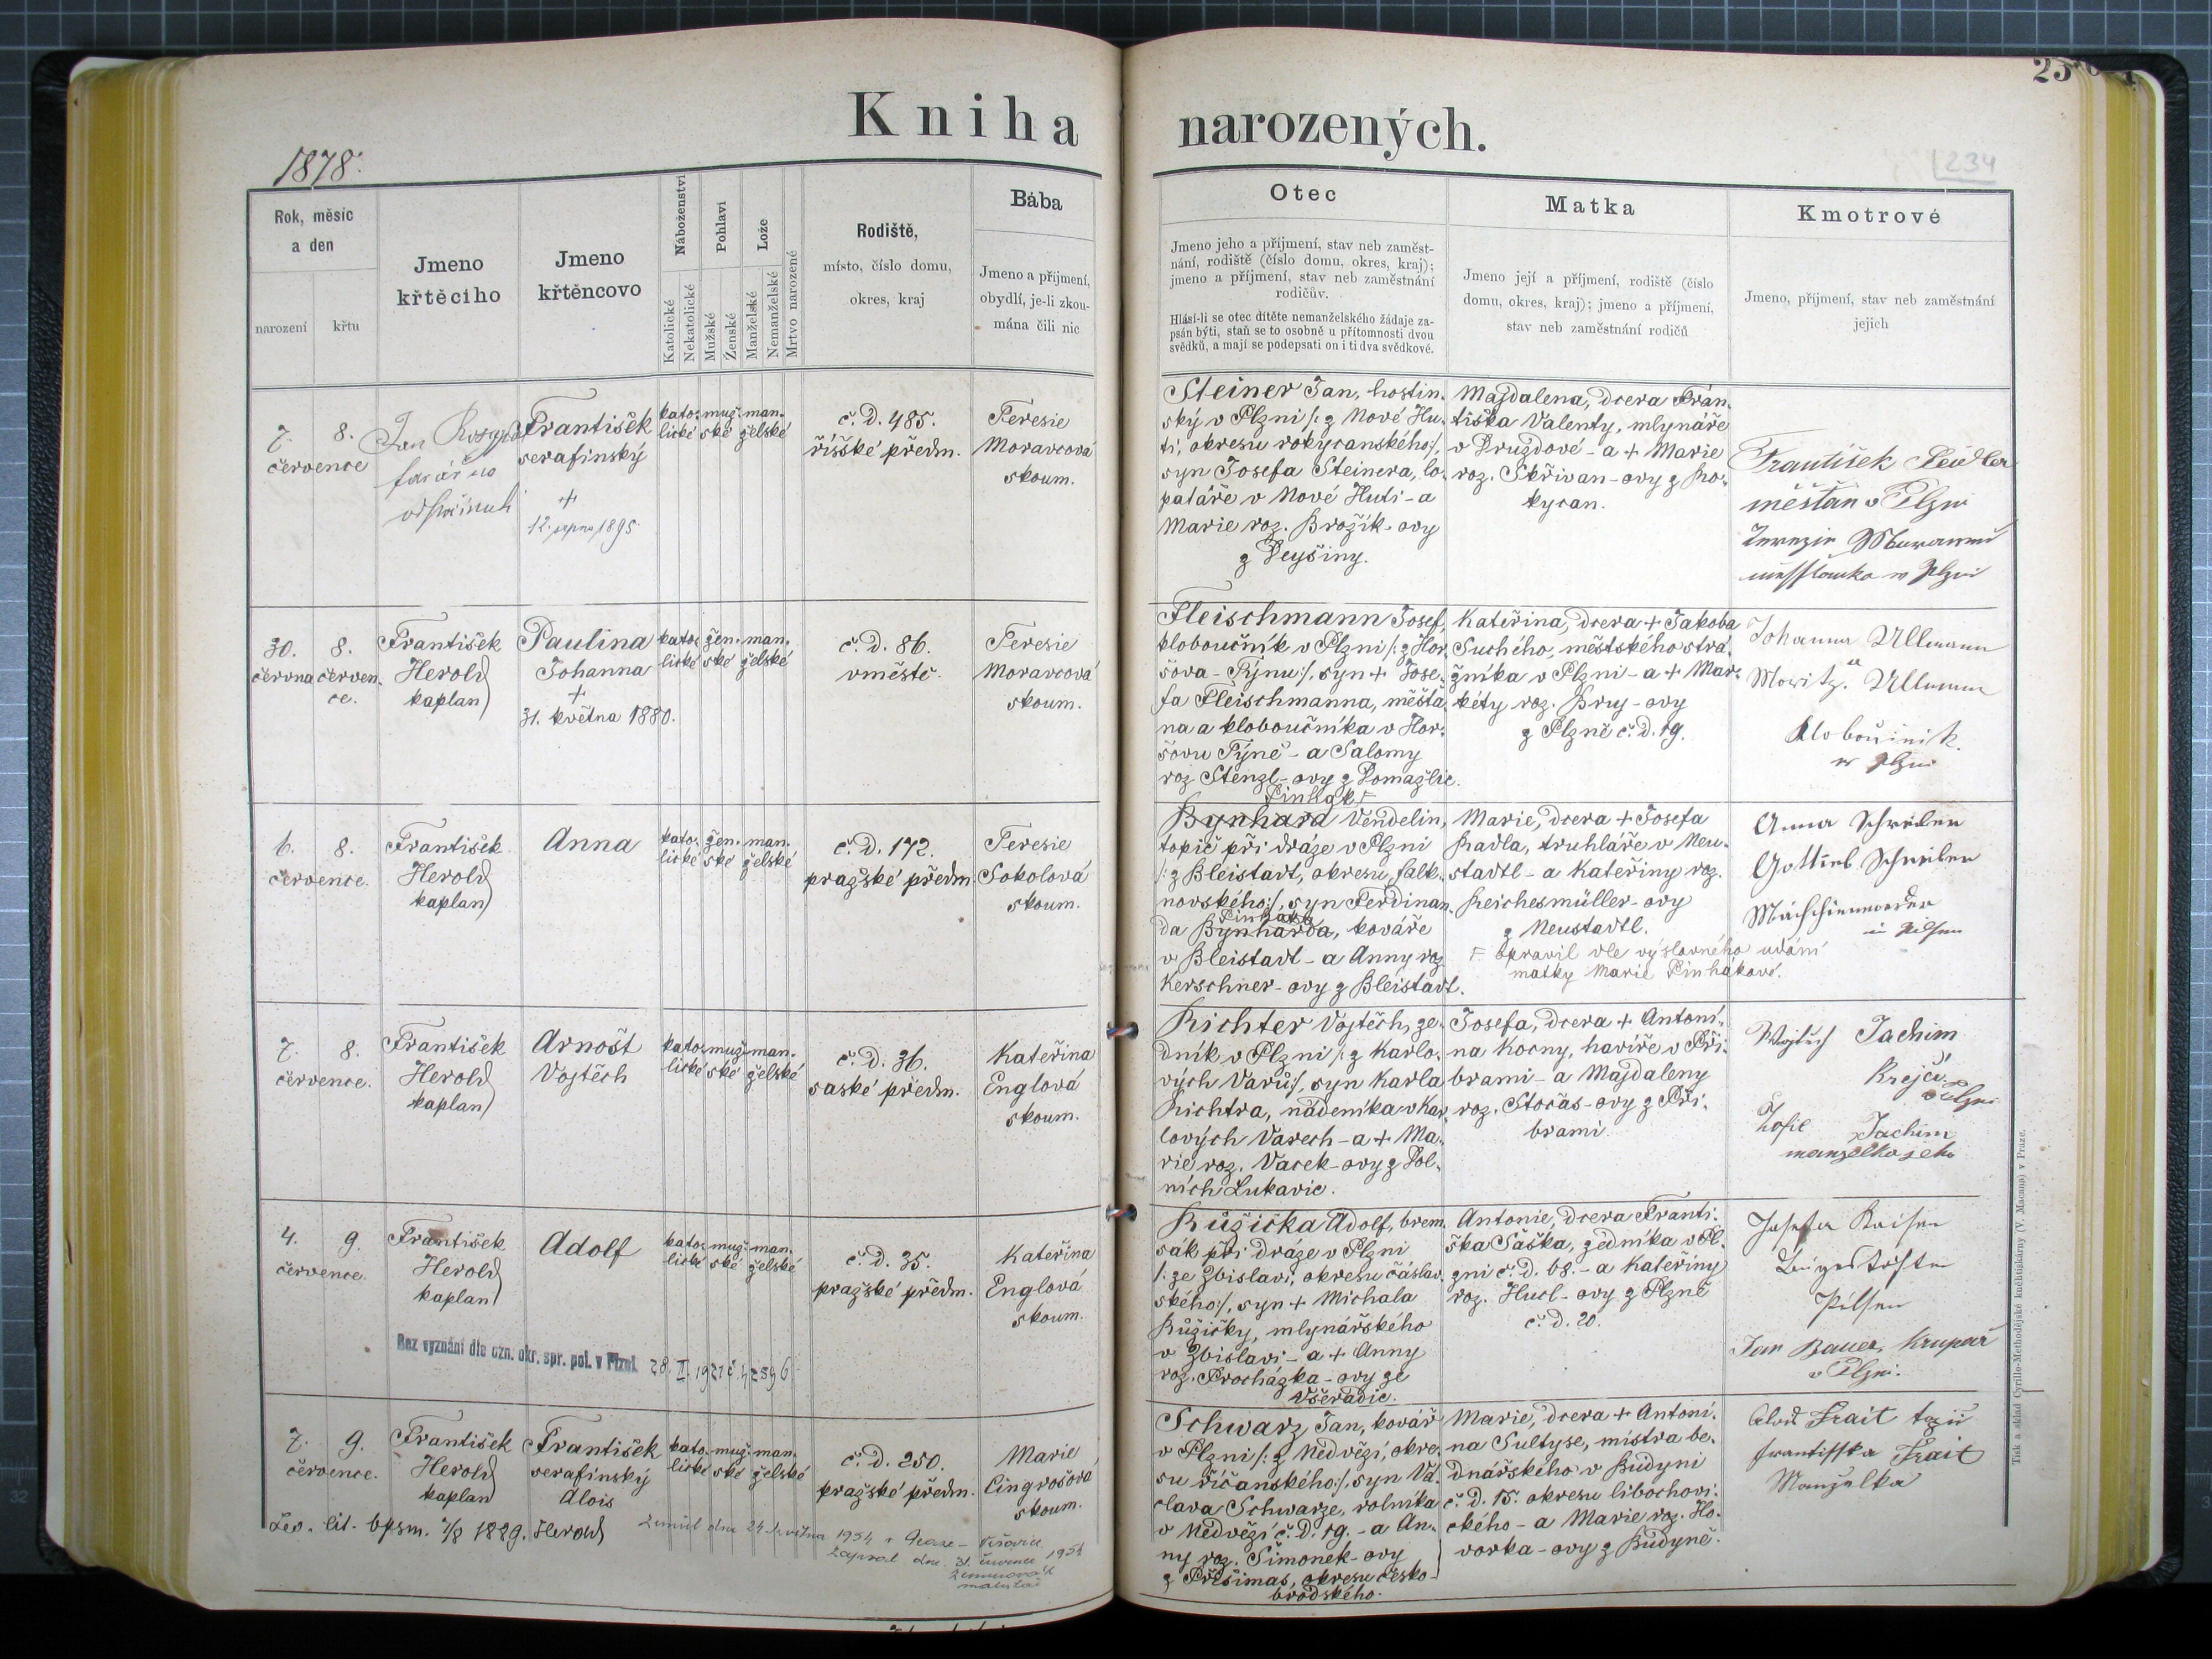 Kniha narozených.
1878.
234
Rok, měsíc
a den
narození
křtu
Jmeno
křtěcího
Jmeno
křtěncovo
Náboženství
Katolické
Nekatolické
Pohlaví
Mužské
Ženské
Lože
Manželské
Nemanželské
Mrtvo narozené
Rodiště,
místo, číslo domu,
okres, kraj
Bába
Jmeno a příjmení,
obydlí, je-li zkou-
mána čili nic
Otec
Jmeno jeho a příjmení, stav neb zaměst-
nání, rodiště (číslo domu, okres, kraj);
jmeno a příjmení, stav neb zaměstnání
rodičův.
Hlásí-li se otec dítěte nemanželského žádaje za-
psán býti, staň se to osobně u přítomnosti dvou
svědků, a mají se podepsati on i ti dva svědkové.
Matka
Jmeno její a příjmení, rodiště (číslo
domu, okres, kraj); jmeno a příjmení,
stav neb zaměstnání rodičů
Kmotrové
Jmeno, příjmení, stav neb zaměstnání
jejich
7.
července
8.
Jan
farář
František
serafinský
+
12. srpna 1895
kato-
lické
muž-
ské
man-
želské
č. D. 485.
říšské předm.
Teresie
Moravcová
skoum.
Steiner Jan, hostin-
ský v Plzni /: z Nové Hu-
ti, okresu rokycanského:/,
syn Josefa Steinera, lo-
patáře v Nové Huti - a
Marie roz. Brožík-ovy
z Deyšiny.
Majdalena, dcera Fran-
tiška Valenty, mlynáře
v Druzdově - a + Marie
roz. Skřivan-ovy z Ro-
kycan.
František
měšťan v Plzni
30.
června
8.
červen-
ce.
František
Herold
kaplan
Paulina
Johanna
+
31. května 1880.
kato-
lické
žen-
ské
man-
želské
č. D. 86.
vměstě.
Teresie
Moravcová
skoum.
Fleischmann Josef,
kloboučník v Plzni /: z Hor-
šova-Týnu:/, syn + Jose-
fa Fleischmanna, měšťa-
na a kloboučníka v Hor-
šovu Týně - a Salomy
roz. Stenzl-ovy z Domažlic.
Kateřina, dcera + Jakoba
Suchého, městského strá-
žníka v Plzni - a + Mar-
kéty roz. Bruj-ovy
z Plzně č. D. 19.
Johanna Ullmann
Moritz Ullmann
6.
8.
července.
František
Herold
kaplan
Anna
kato-
lické
žen-
ské
man-
želské
č. D. 172.
pražské předm.
Teresie
Sokolová
skoum.
Pinhak
Bynhard Vendelin,
topič při dráze v Plzni
/: z Bleistadt, okresu falk-
novského:/, syn Ferdinan-
Pinhaka
da Bynharda, kováře
v Bleistadt - a Anny roz.
Kerschner-ovy z Bleistadt.
Marie, dcera + Josefa
Radla, truhláře v Neu-
stadtl - a Kateřiny roz.
Reichesmüller-ovy
z Neustadtl.
opravil dle výslovného udání
matky Marie Pinhákové.
Anna Schreiber
Gottlieb Schreiber
in Pilsen
7.
8.
července.
František
Herold
kaplan
Arnošt
Vojtěch
kato-
lické
muž-
ské
man-
želské
č. D. 36.
saské předm.
Kateřina
Englová
skoum.
Richter Vojtěch, ze-
dník v Plzni /: z Karlo-
vých Varů:/, syn Karla
Richtra, nádeníka v Kar-
lových Varech - a + Ma-
rie roz. Vacek-ovy z Dol-
ních Lukavic.
Josefa, dcera + Antoní-
na Kocny, havíře v Pří-
brami - a Majdaleny
roz. Stočas-ovy z Pří-
brami.
Vojtěch Jachim
Krejčí
v Plzni
Žofie Jachim
manželka jeho
4.
9.
července.
František
Herold
kaplan
Adolf
kato-
lické
muž-
ské
man-
želské
č. D. 35.
pražské předm.
Kateřina
Englová
skoum.
Bez vyznání dle ozn. okr. spr. pol. v Plzni
Růžička Adolf, brem-
sák při dráze v Plzni
/: ze Zbislavi, okresu čáslav-
ského:/, syn + Michala
Růžičky, mlynářského
v Zbislavi - a + Anny
roz. Procházka-ovy ze
Všeradic.
Antonie, dcera Franti-
ška Saška, zedníka v Pl-
zni č. D. 68. - a Kateřiny
roz. Hucl-ovy z Plzně
č. D. 20.
Josefa Kaiser
Pilsen
Jan Bauer, Krupař
v Plzni.
7.
9.
července.
František
Herold
kaplan
František
serafinský
Alois
kato-
lické
muž-
ské
man-
želské
č. D. 250.
pražské předm.
Marie
Cingrošová
skoum.
Schwarz Jan, kovář
v Plzni /: z Nedvězí, okre-
su říčanského:/, syn Vá-
clava Schwarze, rolníka
v Nedvězí č. D. 19. - a An-
ny roz. Šimonek-ovy
z Přišimas, okresu česko-
brodského.
Marie, dcera + Antoní-
na Sultyse, mistra be-
dnářského v Budyni
č. D. 15. okresu libochovi-
ckého - a Marie roz. Ho-
vorka-ovy z Budyně.
Frait
Frait
Manželka
lit. bpsm. 7/8 1889. Herold
Zemřel dne 24. května 1954 v Praze -
Zapsal dne 31. července 1954
Tisk a sklad Cyrillo-Methodějské knihtiskárny (V. Macana) v Praze.